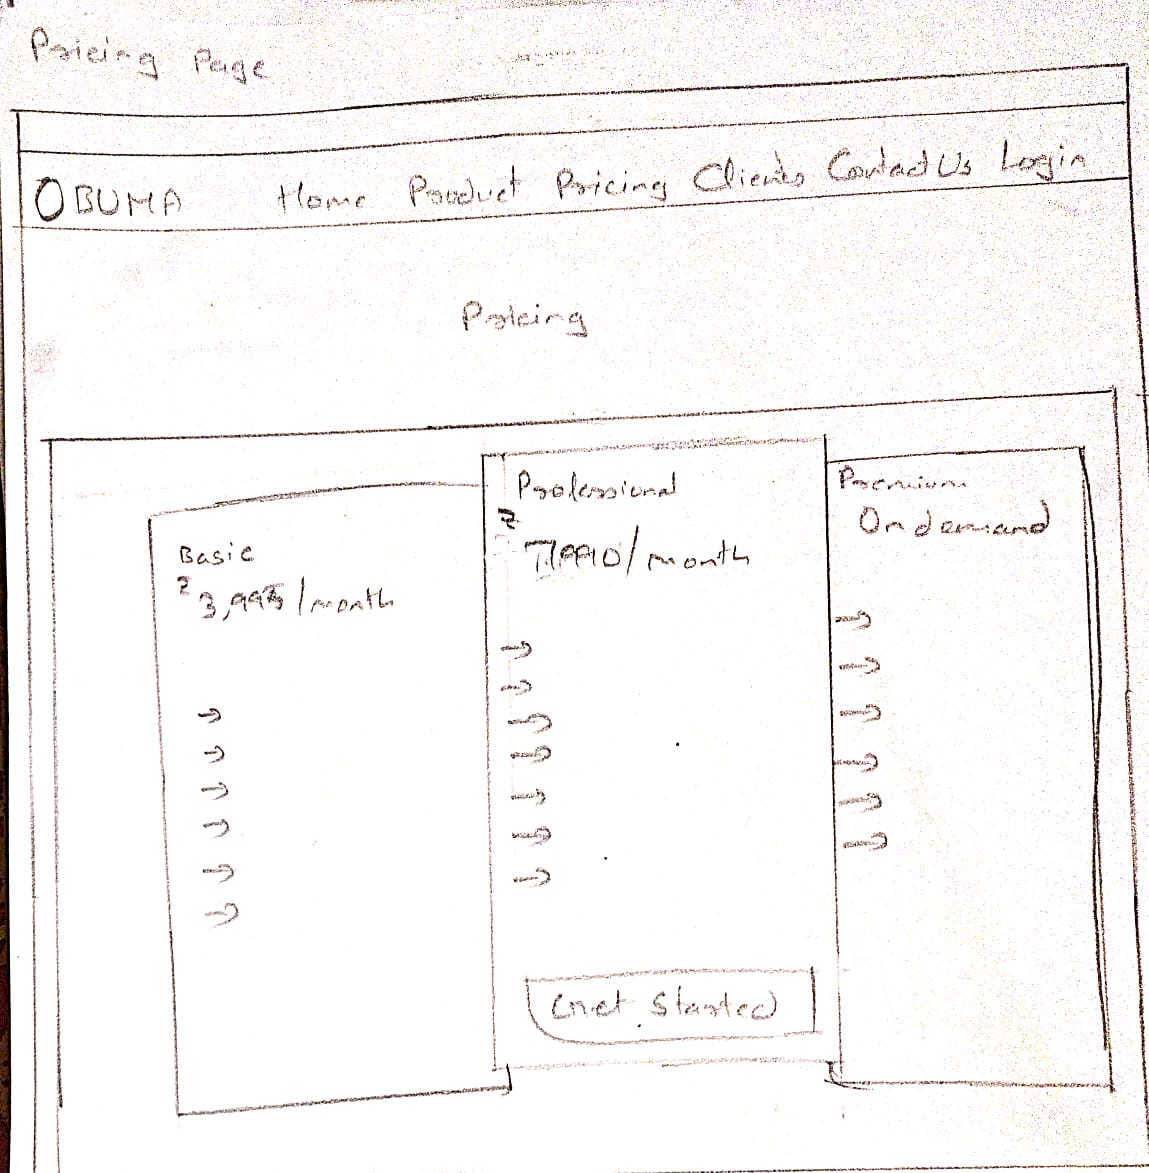 Pricing Page
OBUMA Home Product Pricing Clients Contact Us Login
Pricing
Basic
3,995 /month
Professional
/month
Get Started
Premium
On demand